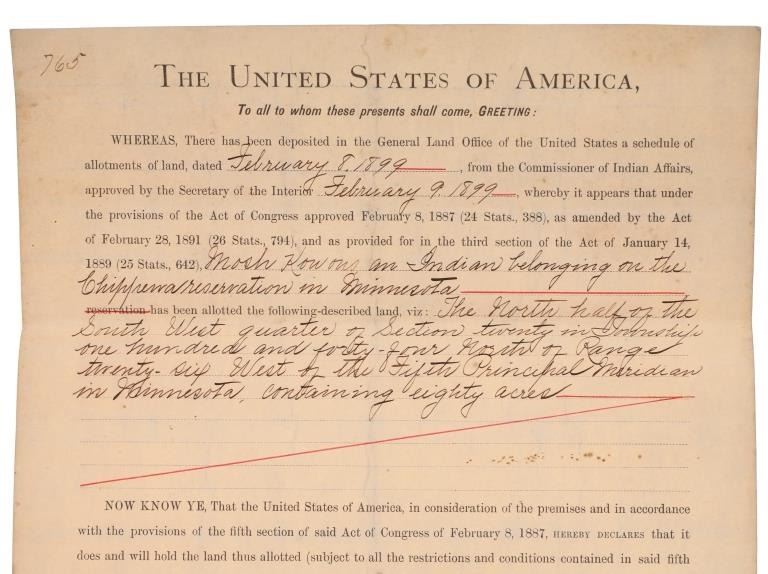 765
THE UNITED STATES OF AMERICA,
To all to whom these presents shall come, GREETING:
WHEREAS, There has been deposited in the General Land Office of the United States a schedule of
allotments of land, dated February 8. 1899, from the Commissioner of Indian Affairs,
approved by the Secretary of the Interior February 9. 1899, whereby it appears that under
the provisions of the Act of Congress approved February 8, 1887 (24 Stats., 388), as amended by the Act
of February 28, 1891 (26 Stats., 794), and as provided for in the third section of the Act of January 14,
1889 (25 Stats., 642), Mosh Kow ous an Indian belonging on the
Chippewa reservation in Minnesota
reservation has been allotted the following-described land, viz: The North half of the
South West quarter of Section twenty in Township
one hundred and forty-four North of Range
twenty-six West of the Fifth Principal Meridian
in Minnesota, containing eighty acres
NOW KNOW YE, That the United States of America, in consideration of the premises and in accordance
with the provisions of the fifth section of said Act of Congress of February 8, 1887, HEREBY DECLARES that it
does and will hold the land thus allotted (subject to all the restrictions and conditions contained in said fifth